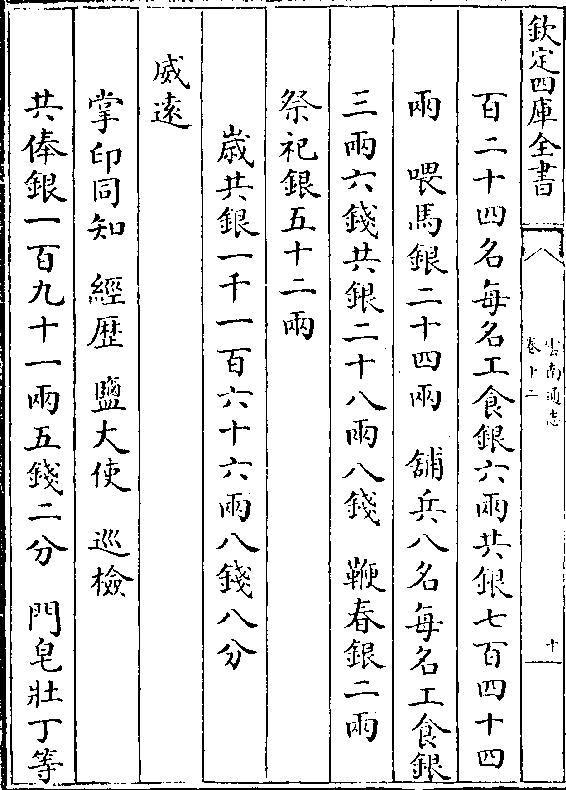 欽定四庫全書
雲南通志
卷十二
十
百二十四名每名工食銀六兩共銀七百四十四
兩　喂馬銀二十四兩　舖兵八名每名工食銀
三兩六錢共銀二十八兩八錢　鞭春銀二兩
祭祀銀五十二兩
歲共銀一千一百六十六兩八錢八分
威逺
掌印同知　經歷　鹽大使　巡檢
共俸銀一百九十一兩五錢二分　門皂壯丁等